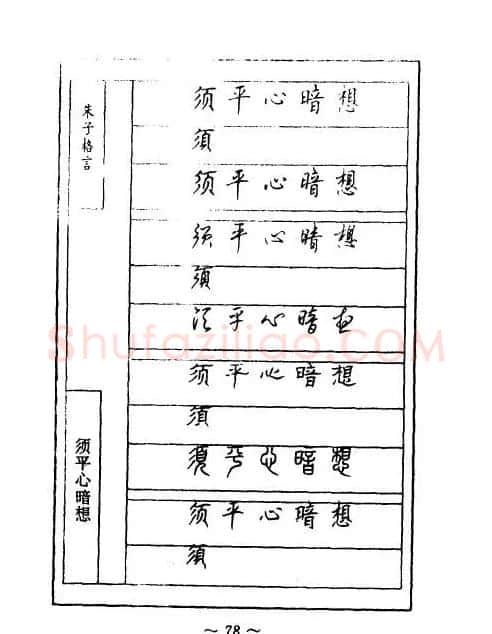 朱子格言
须平心暗想
須
须平心暗想
须平心暗想
須
须平心暗想
须平心暗想
須
須平心暗想
须平心暗想
須
须平心暗想
Shufaziliao.COM
~ 78 ~